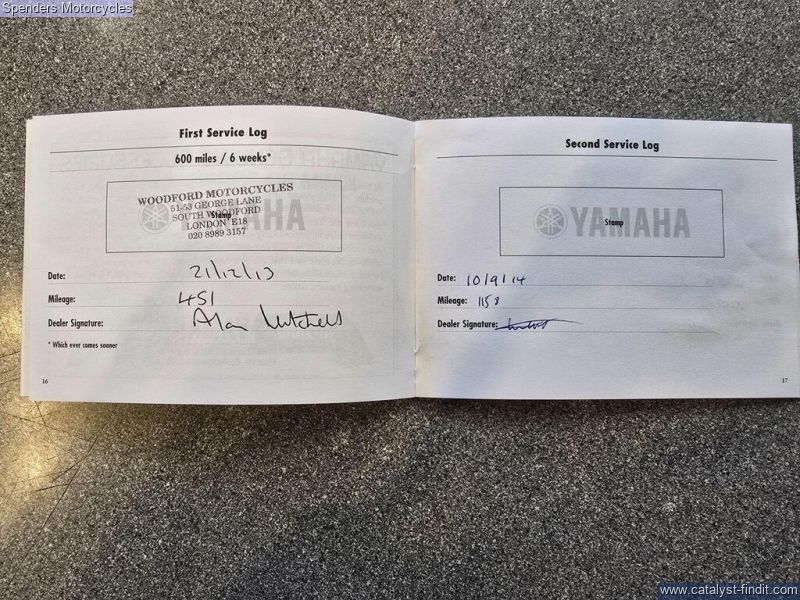 Spenders Motorcycles
First Service Log
600 miles / 6 weeks*
WOODFORD MOTORCYCLES
51-53 GEORGE LANE
SOUTH WOODFORD
LONDON E18
020 8989 3157
Stamp
YAMAHA
Date: 21/12/13
Mileage: 451
Dealer Signature: Alan Mitchell
* Which ever comes sooner
16
Second Service Log
YAMAHA
Stamp
Date: 10/9/14
Mileage: 1158
Dealer Signature:
17
www.catalyst-findit.com